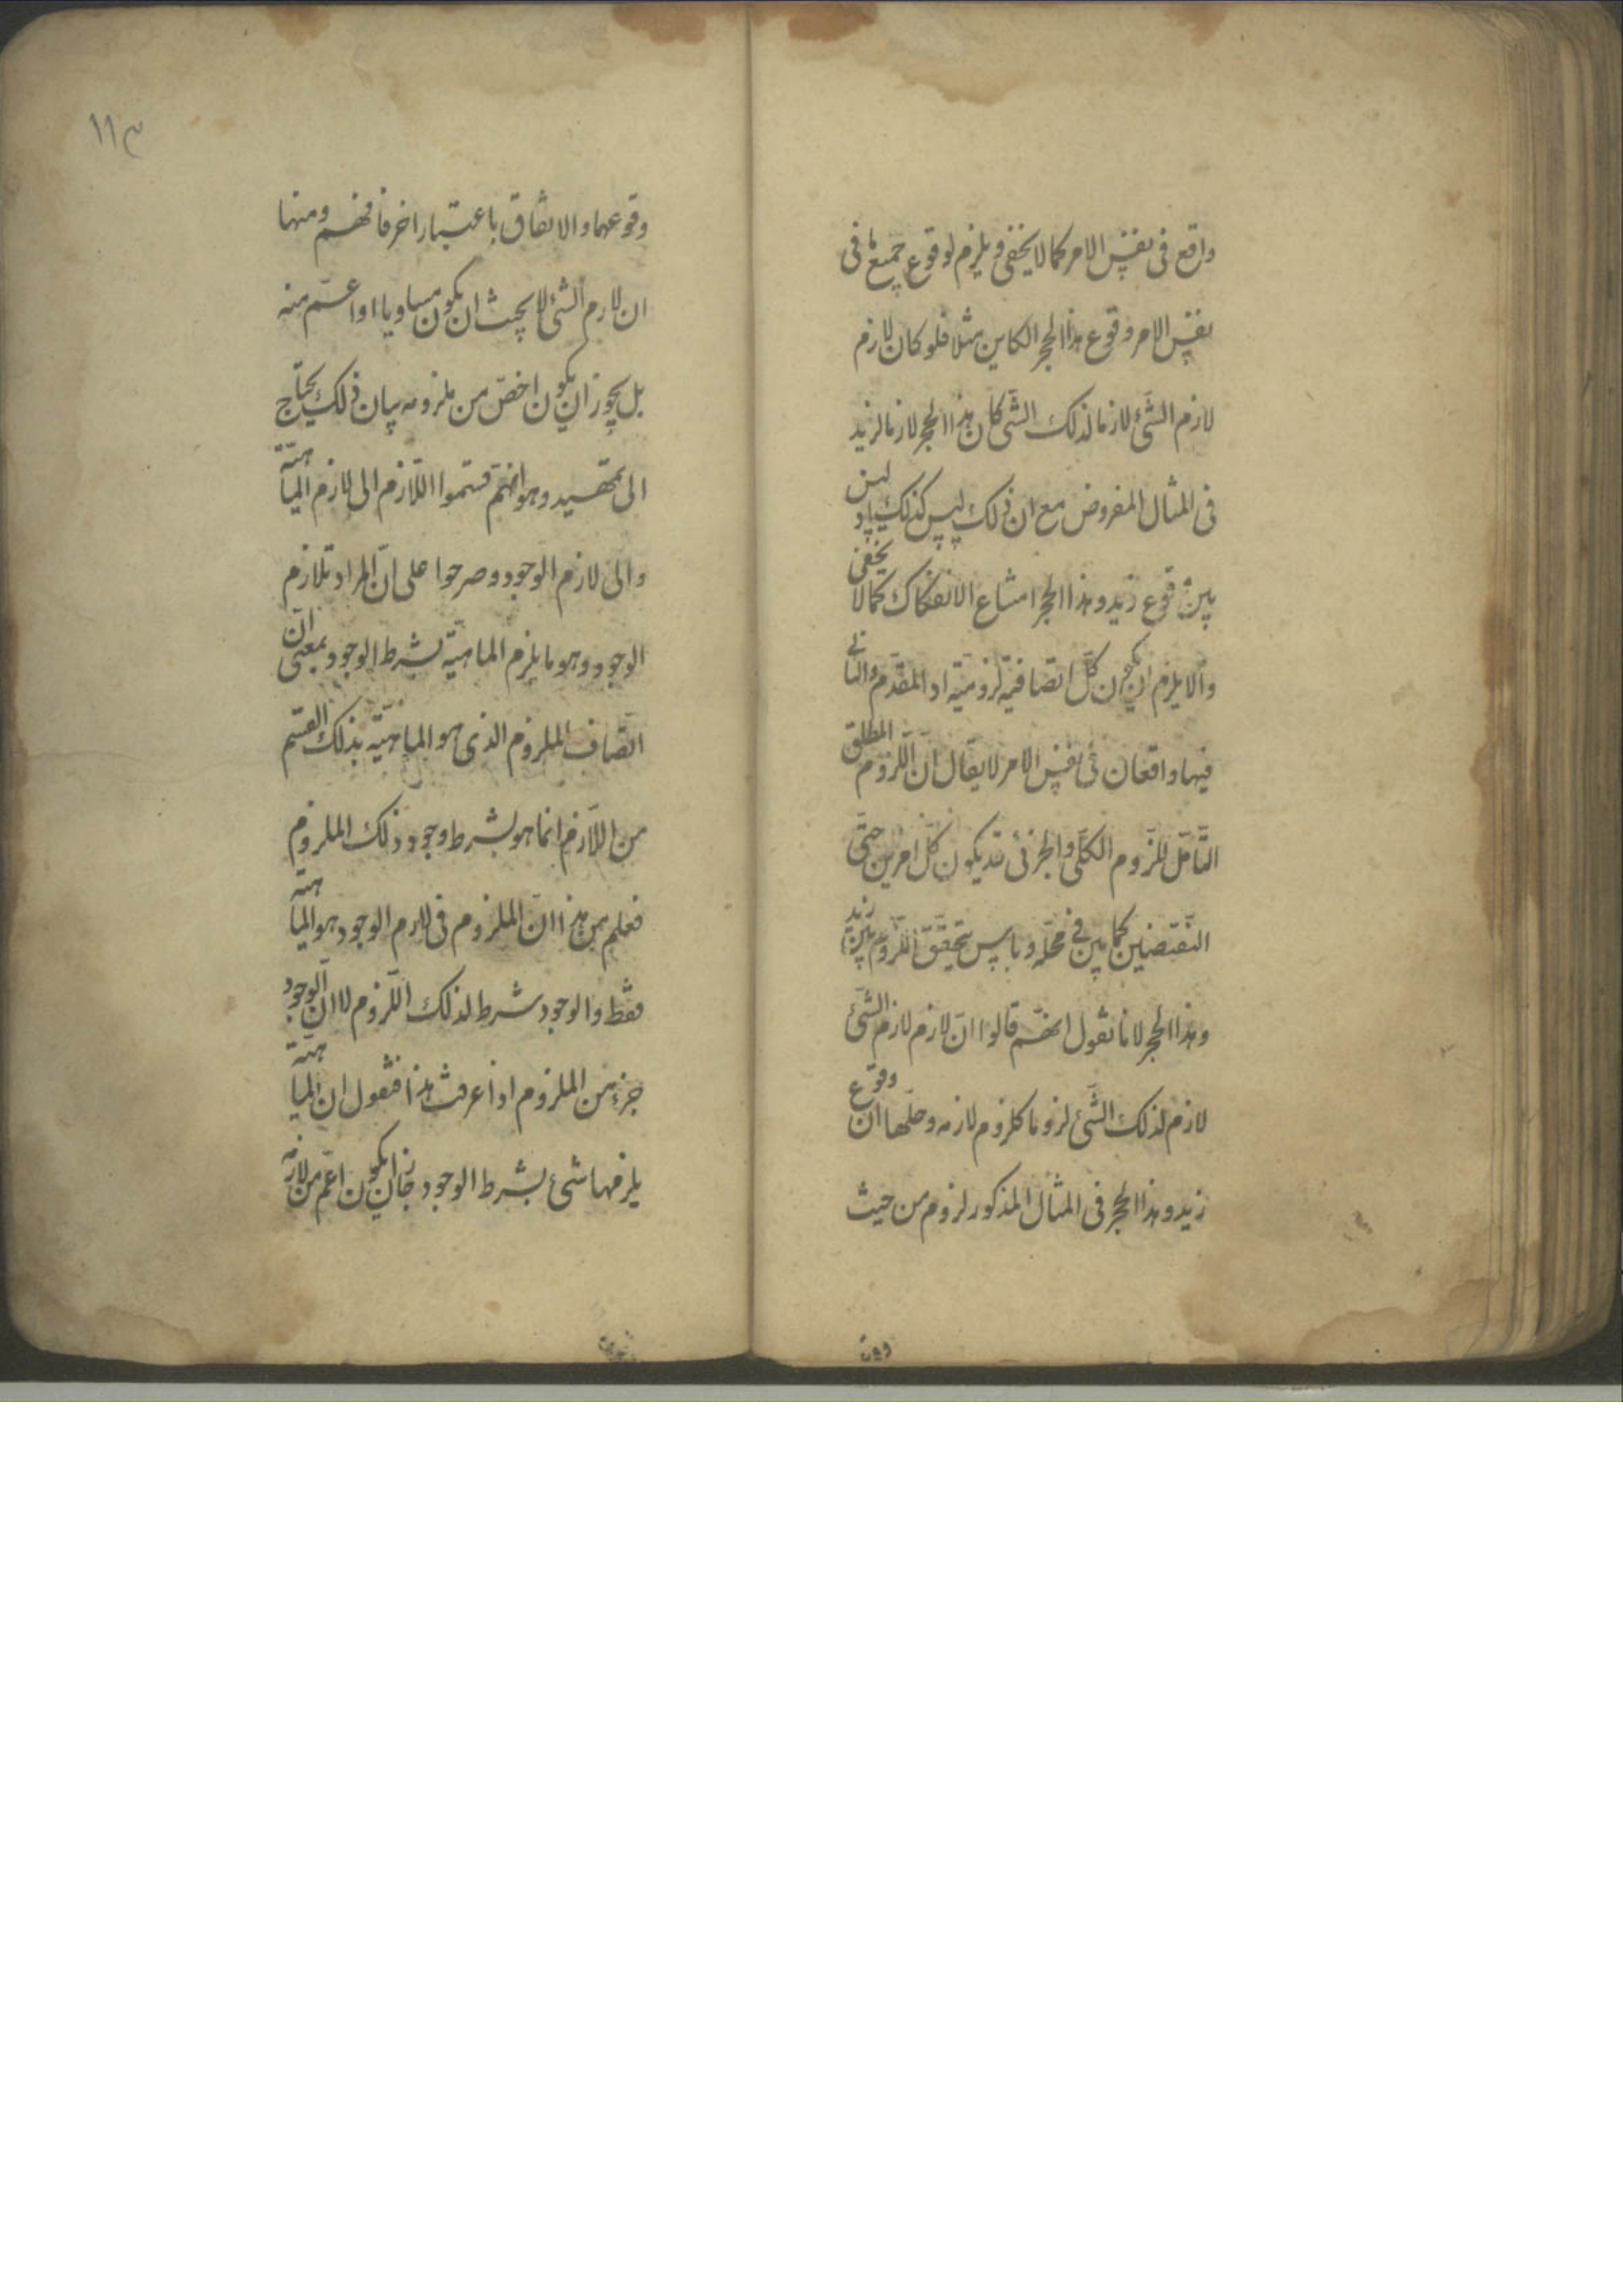 واقع فى نفس الامر كما لا يخفى و يلزم لوقوع جميع ما فى
نفس الامر وقوع هذا الحجر الكاين مثلا فلو كان لازم
لازم الشئ لازما لذلك الشئ كان هذا الحجر لازما لزيد
فى المثال المفروض مع ان ذلك ليس كذلك اذ ليس
بين وقوع زيد و هذا الحجر امتناع الانفكاك كما لا يخفى
والا يلزم ان يكون كل اتفاقية لزومية اذ المقدم والتالى
فيها واقعان فى نفس الامر لا يقال ان اللزوم المطلق
الشامل للزوم الكلى والجزئى قد يكون كل امرين حتى
النقيضين كما بين فى محله و باس بتحقق اللزوم بين زيد
وهذا الحجر لانا نقول انهم قالوا ان لازم لازم الشئ
لازم لذلك الشئ لزوما كلزوم لازمه وحلها ان وقوع
زيد و هذا الحجر فى المثال المذكور لزوم من حيث
١١٣
وقوعهما والاتفاق باعتبار اخر فافهم ومنها
ان لازم الشئ لا يجب ان يكون مساويا او اعم منه
بل يجوز ان يكون اخص من ملزومه بيان ذلك يحتاج
الى تمهيد وهو انهم قسموا اللازم الى لازم الماهية
والى لازم الوجود وصرحوا على ان المراد بلازم
الوجود وهو ما يلزم الماهية بشرط الوجود بمعنى ان
اتصاف الملزوم الذى هو الماهية بذلك القسم
من اللازم انما هو بشرط وجود ذلك الملزوم
فعلم من هذا ان الملزوم فى لازم الوجود هو الماهية
فقط والوجود شرط لذلك اللزوم لا ان الوجود
جزء من الملزوم اذا عرفت هذا فنقول ان الماهية
يلزمها شئ بشرط الوجود جاز ان يكون اعم من لازمه